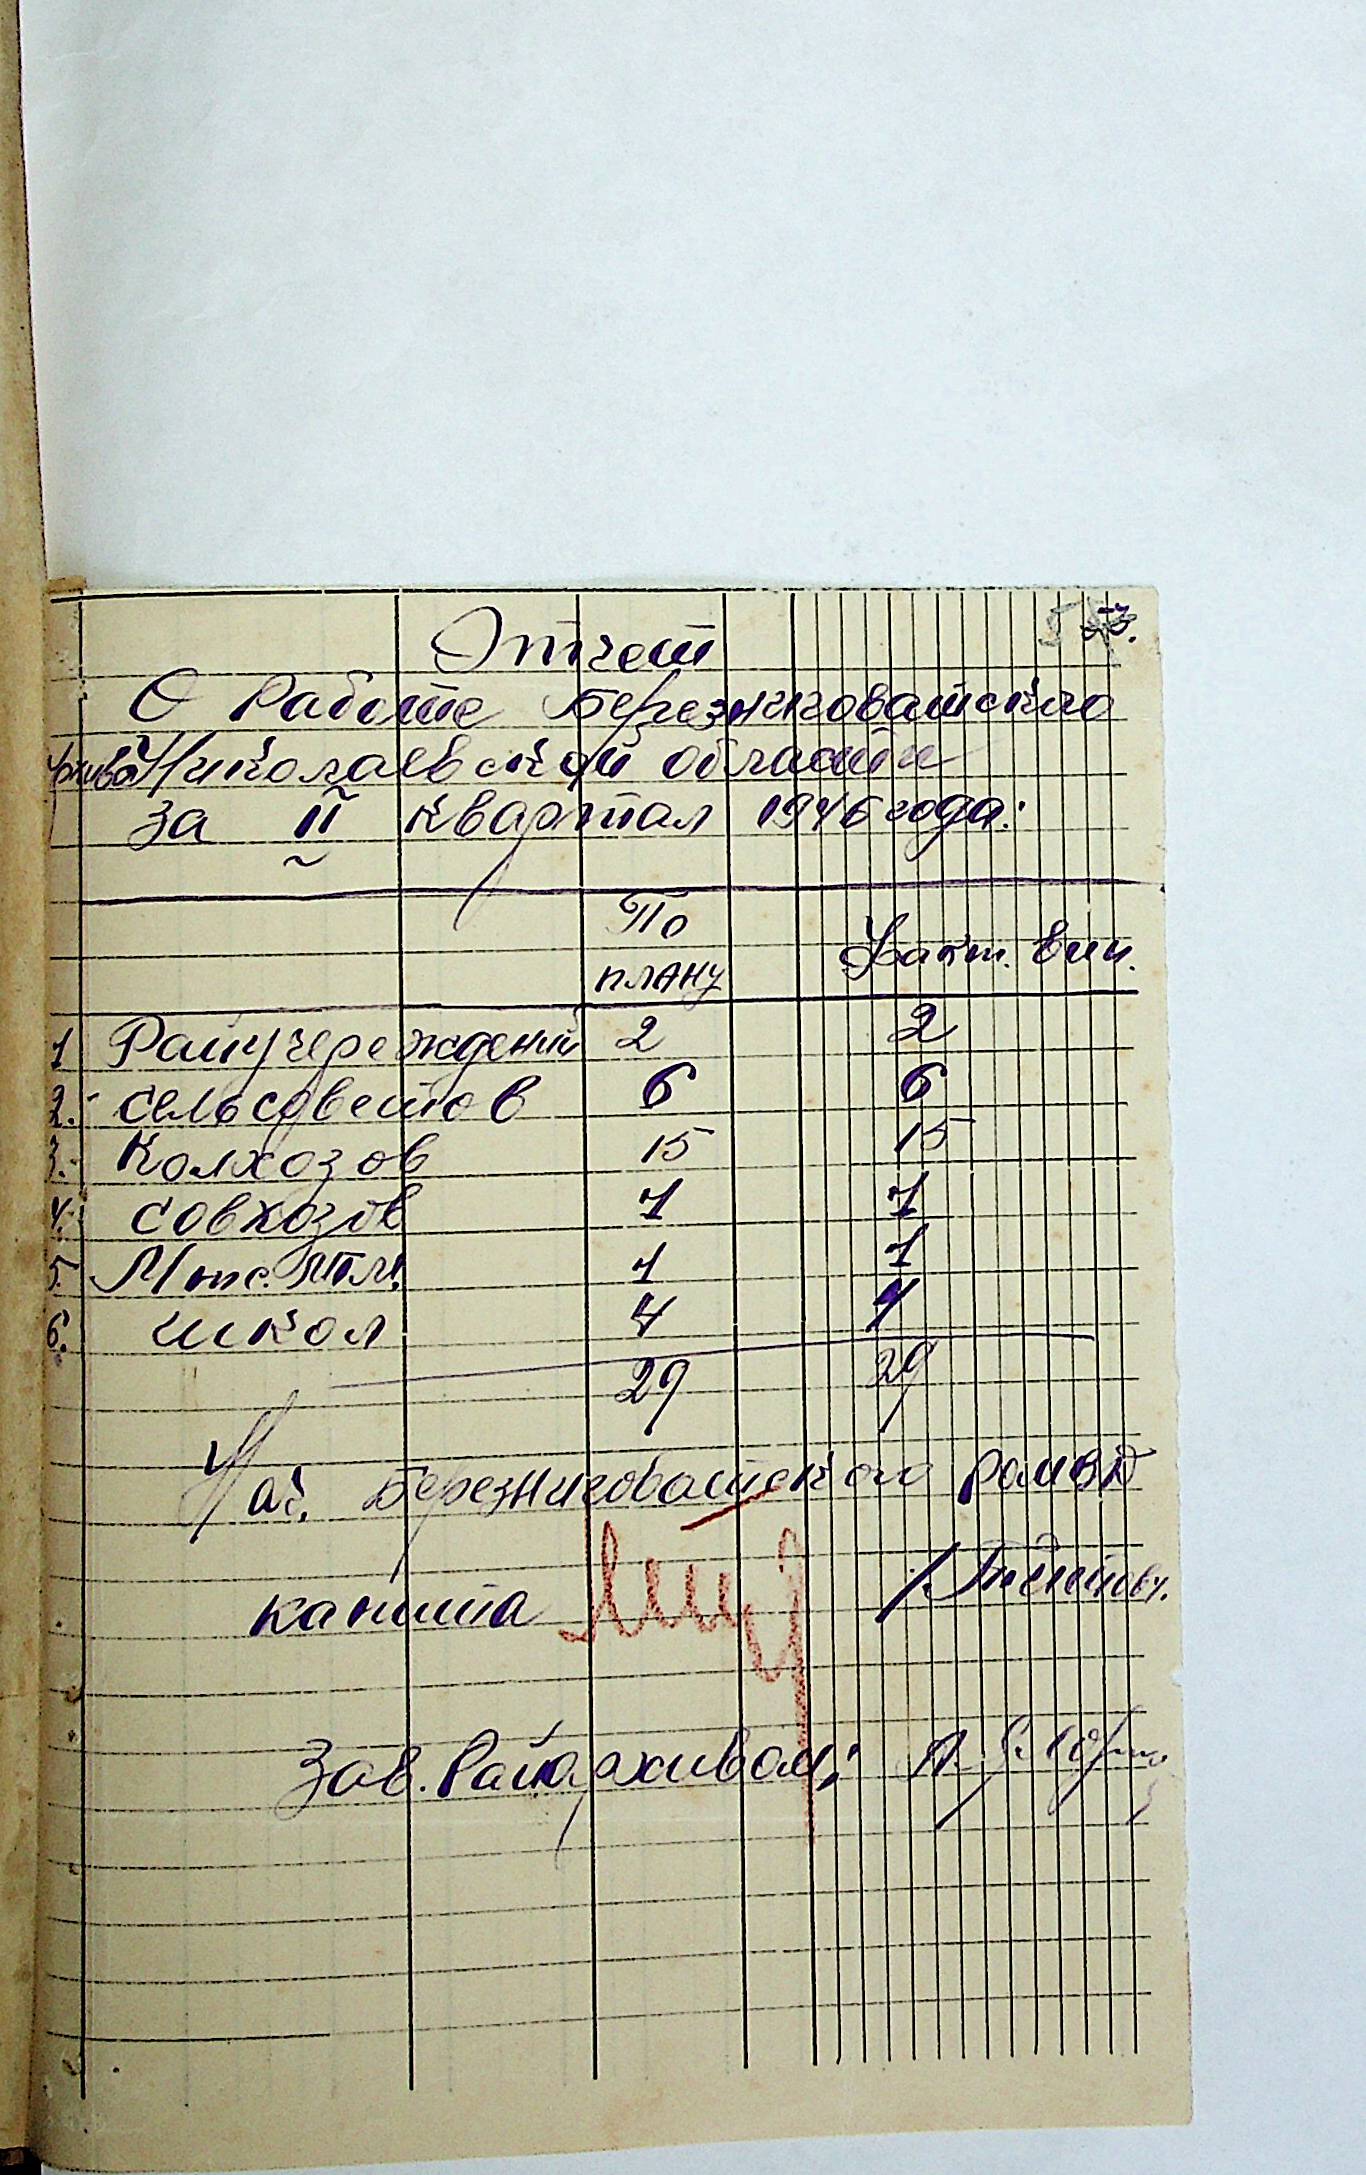 Отчет
О работе Березниговатского
Архива Николаевской области
за II квартал 1946 года:
По
плану Факт. вып.
1 Райучереждений 2 2
2.- сельсоветов 6 6
3.- Колхозов 15 15
4. совхозов 1 1
5. 1 1
6. школ 4 4
29 29
Нач. Березниговатского РайМВД
капита
Зав. Райархивом: А.